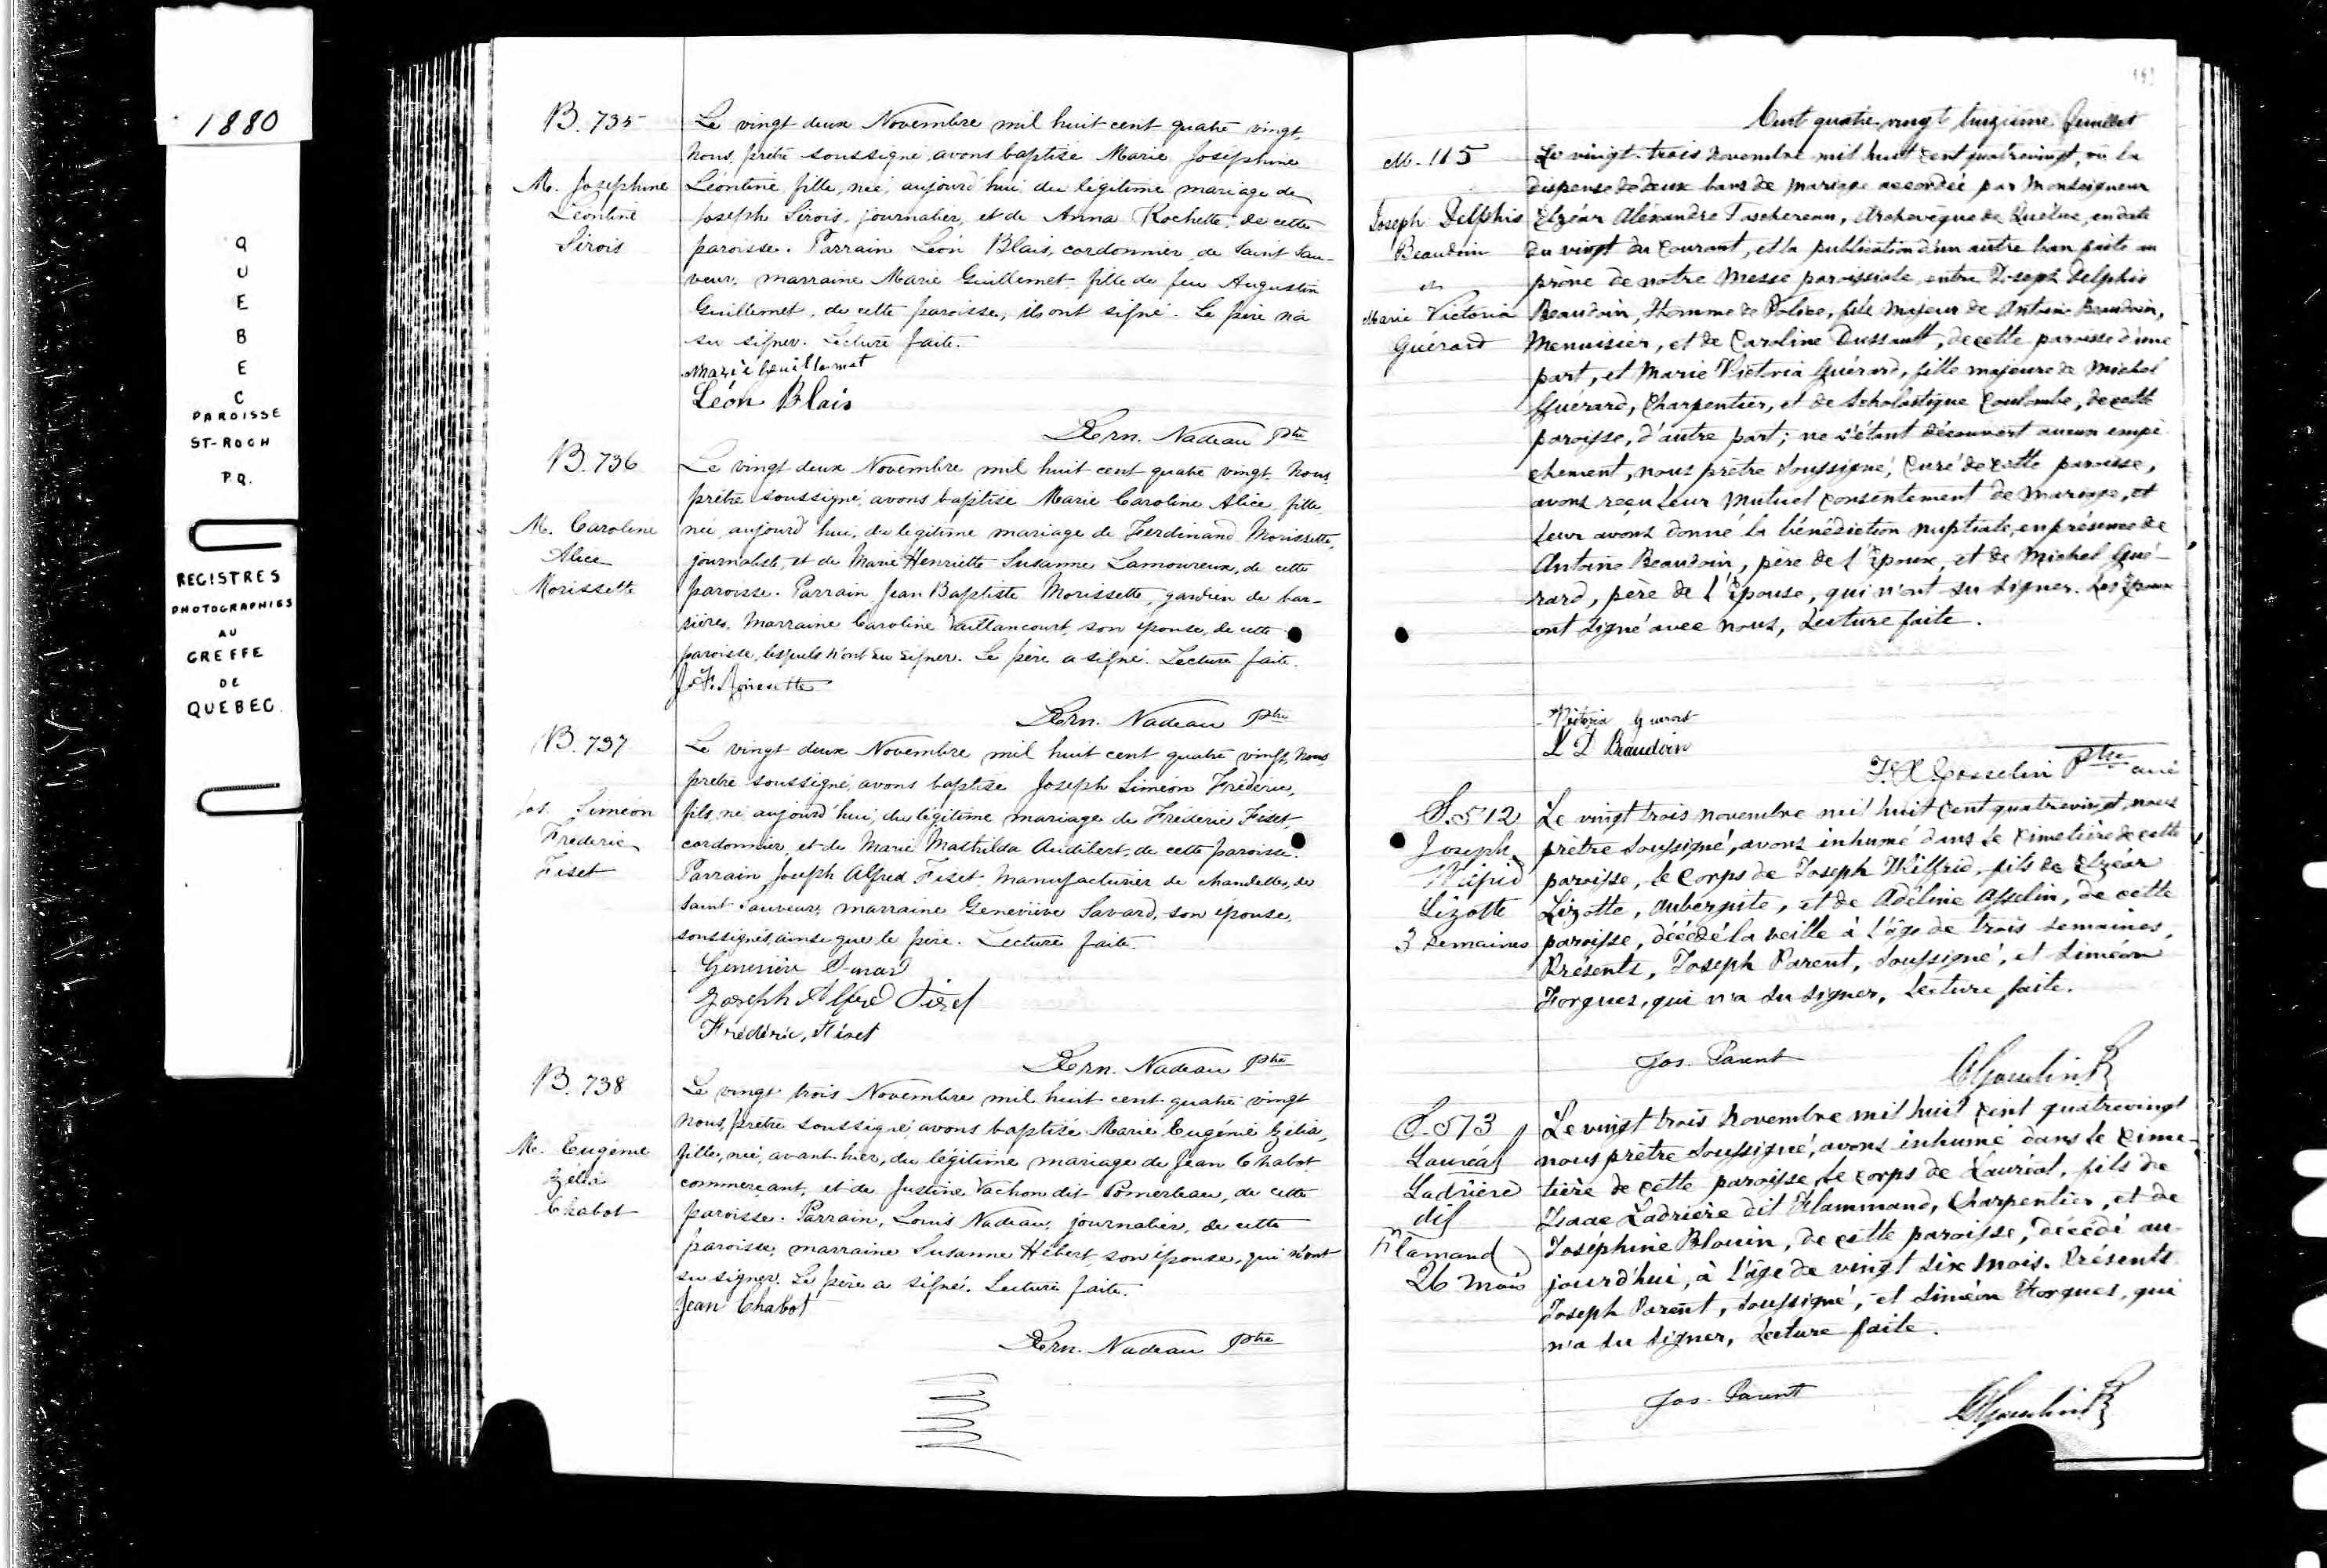 1880
QUEBEC
PAROISSE
ST-ROCH
P.Q.
REGISTRES
PHOTOGRAPHIES
AU
GREFFE
DE
QUEBEC
B. 735
M. Josephine
Léontine
Sirois
Le vingt deux Novembre mil huit cent quatre vingt,
Nous, prêtre soussigné, avons baptisé Marie Joséphine
Léontine fille, née, aujourd'hui du légitime mariage de
Joseph Sirois, journalier, et de Anna Rochette, de cette
paroisse. Parrain Léon Blais, cordonnier, de Saint Sau-
veur, marraine Marie Guillemet fille de feu Augustin
Guillemet, de cette paroisse, ils ont signé. Le père n'a
su signer. Lecture faite.
Marie Guillemet
Léon Blais
Nadeau Ptre
B. 736
M. Caroline
Alice
Morissette
Le vingt deux Novembre mil huit cent quatre vingt, Nous,
prêtre soussigné, avons baptisé Marie Caroline Alice, fille,
née, aujourd'hui, du légitime mariage de Ferdinand Morissette,
journaliste, et de Marie Henriette Susanne Lamoureux, de cette
paroisse. Parrain Jean Baptiste Morissette, gardien de bar-
rières, Marraine Caroline Vaillancourt, son épouse, de cette
paroisse, lesquels n'ont su signer. Le père a signé. Lecture faite.
J. F. Morissette
Nadeau Ptre
B. 737
Jos. Siméon
Frédéric
Fiset
Le vingt deux Novembre mil huit cent quatre vingt, Nous,
prêtre soussigné, avons baptisé Joseph Siméon Frédéric,
fils, né aujourd'hui, du légitime mariage de Frédéric Fiset,
cordonnier, et de Marie Mathilda Audibert, de cette paroisse.
Parrain Joseph Alfred Fiset, Manufacturier de chandelles, de
Saint Sauveur, marraine Geneviève Savard, son épouse,
soussignés, ainsi que le père. Lecture faite.
Geneviève Savard
Joseph Alfred Fiset
Frédéric, Fiset
Nadeau Ptre
B. 738
M. Eugénie
Zélia
Chabot
Le vingt trois Novembre mil huit cent quatre vingt
Nous, prêtre soussigné, avons baptisé Marie Eugénie Zélia,
fille, née, avant-hier, du légitime mariage de Jean Chabot,
commerçant, et de Justine Vachon dit Pomerleau, de cette
paroisse. Parrain, Louis Nadeau, journalier, de cette
paroisse, marraine Susanne Hébert, son épouse, qui n'ont
su signer. Le père a signé. Lecture faite.
Jean Chabot
Nadeau Ptre
Cent quatre vingt treizième feuillet
M. 115
Joseph Delphis
Beaudoin
et
Marie Victoria
Guérard
Le vingt-trois novembre mil huit cent quatrevingt, vû la
dispense de deux bans de mariage accordée par Monseigneur
Elzéar Alexandre Taschereau, Archevêque de Québec, en date
du vingt du courant, et la publication d'un autre ban faite au
prône de notre Messe paroissiale entre Joseph Delphis
Beaudoin, Homme de Police, fils majeur de Antoine Beaudoin,
Menuisier, et de Caroline Dussault, de cette paroisse d'une
part, et Marie Victoria Guérard, fille majeure de Michel
Guérard, Charpentier, et de Scholastique Coulombe, de cette
paroisse, d'autre part; ne s'étant découvert aucun empê-
chement, nous prêtre soussigné, Curé de cette paroisse,
avons reçu leur mutuel consentement de mariage, et
leur avons donné la bénédiction nuptiale, en présence de
Antoine Beaudoin, père de l'époux, et de Michel Gué-
rard, père de l'épouse, qui n'ont su signer. Les époux
ont signé avec nous, Lecture faite.
Victoria Guerard
Beaudoin
F. X. Gosselin Ptre curé
S. 512
Joseph
Wilfrid
Lizotte
3 semaines
Le vingt trois novembre mil huit cent quatrevingt, nous
prêtre soussigné, avons inhumé dans le cimetière de cette
paroisse, le corps de Joseph Wilfrid, fils de Elzéar
Lizotte, aubergiste, et de Adéline Asselin, de cette
paroisse, décédé la veille à l'âge de trois semaines,
Présents, Joseph Parent, soussigné, et Siméon
Forgues, qui n'a su signer, Lecture faite.
Jos. Parent
S. 513
Lauréat
Ladrière
dit
Flamand
26 mois
Le vingt trois novembre mil huit cent quatrevingt
nous prêtre soussigné, avons inhumé dans le cime-
tière de cette paroisse, le corps de Lauréat, fils de
Isaac Ladrière dit Flammand, Charpentier, et de
Joséphine Blouin, de cette paroisse, décédé au-
jourd'hui, à l'âge de vingt six mois. Présents
Joseph Parent, soussigné, et Siméon Forgues, qui
n'a su signer, Lecture faite.
Jos. Parent